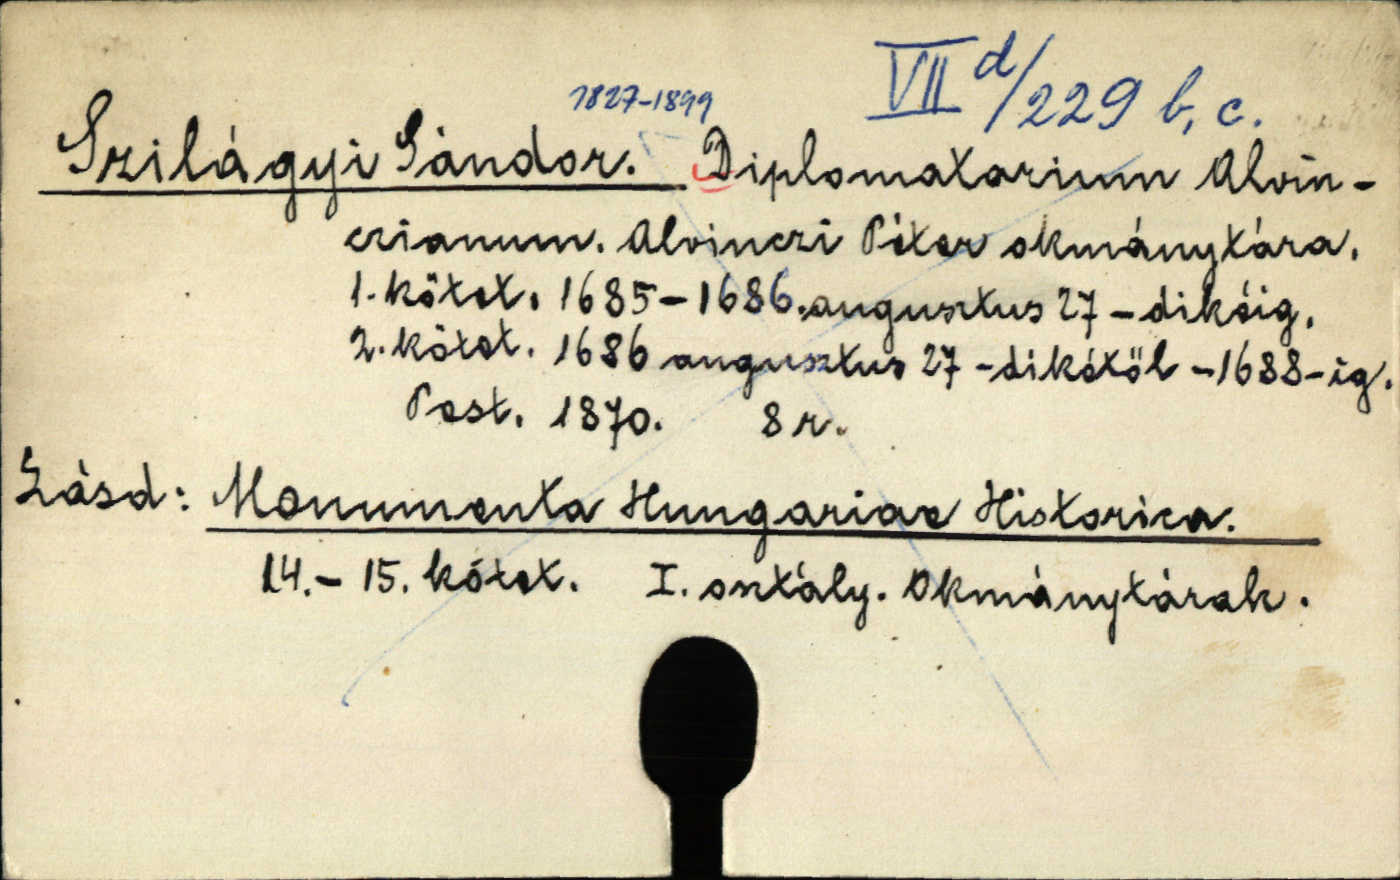 VII d/229 b, c.
1827-1899
Szilágyi Sándor. Diplomatarium Alvin-
czianum. Alvinczi Péter okmánytára.
1. kötet. 1685-1686. augusztus 27-dikéig.
2. kötet. 1686 augusztus 27-dikétöl -1688-ig.
Pest. 1870. 8 r.
Lásd: Monumenta Hungariae Historica.
14.-15. kötet. I. osztály. Okmánytárak.